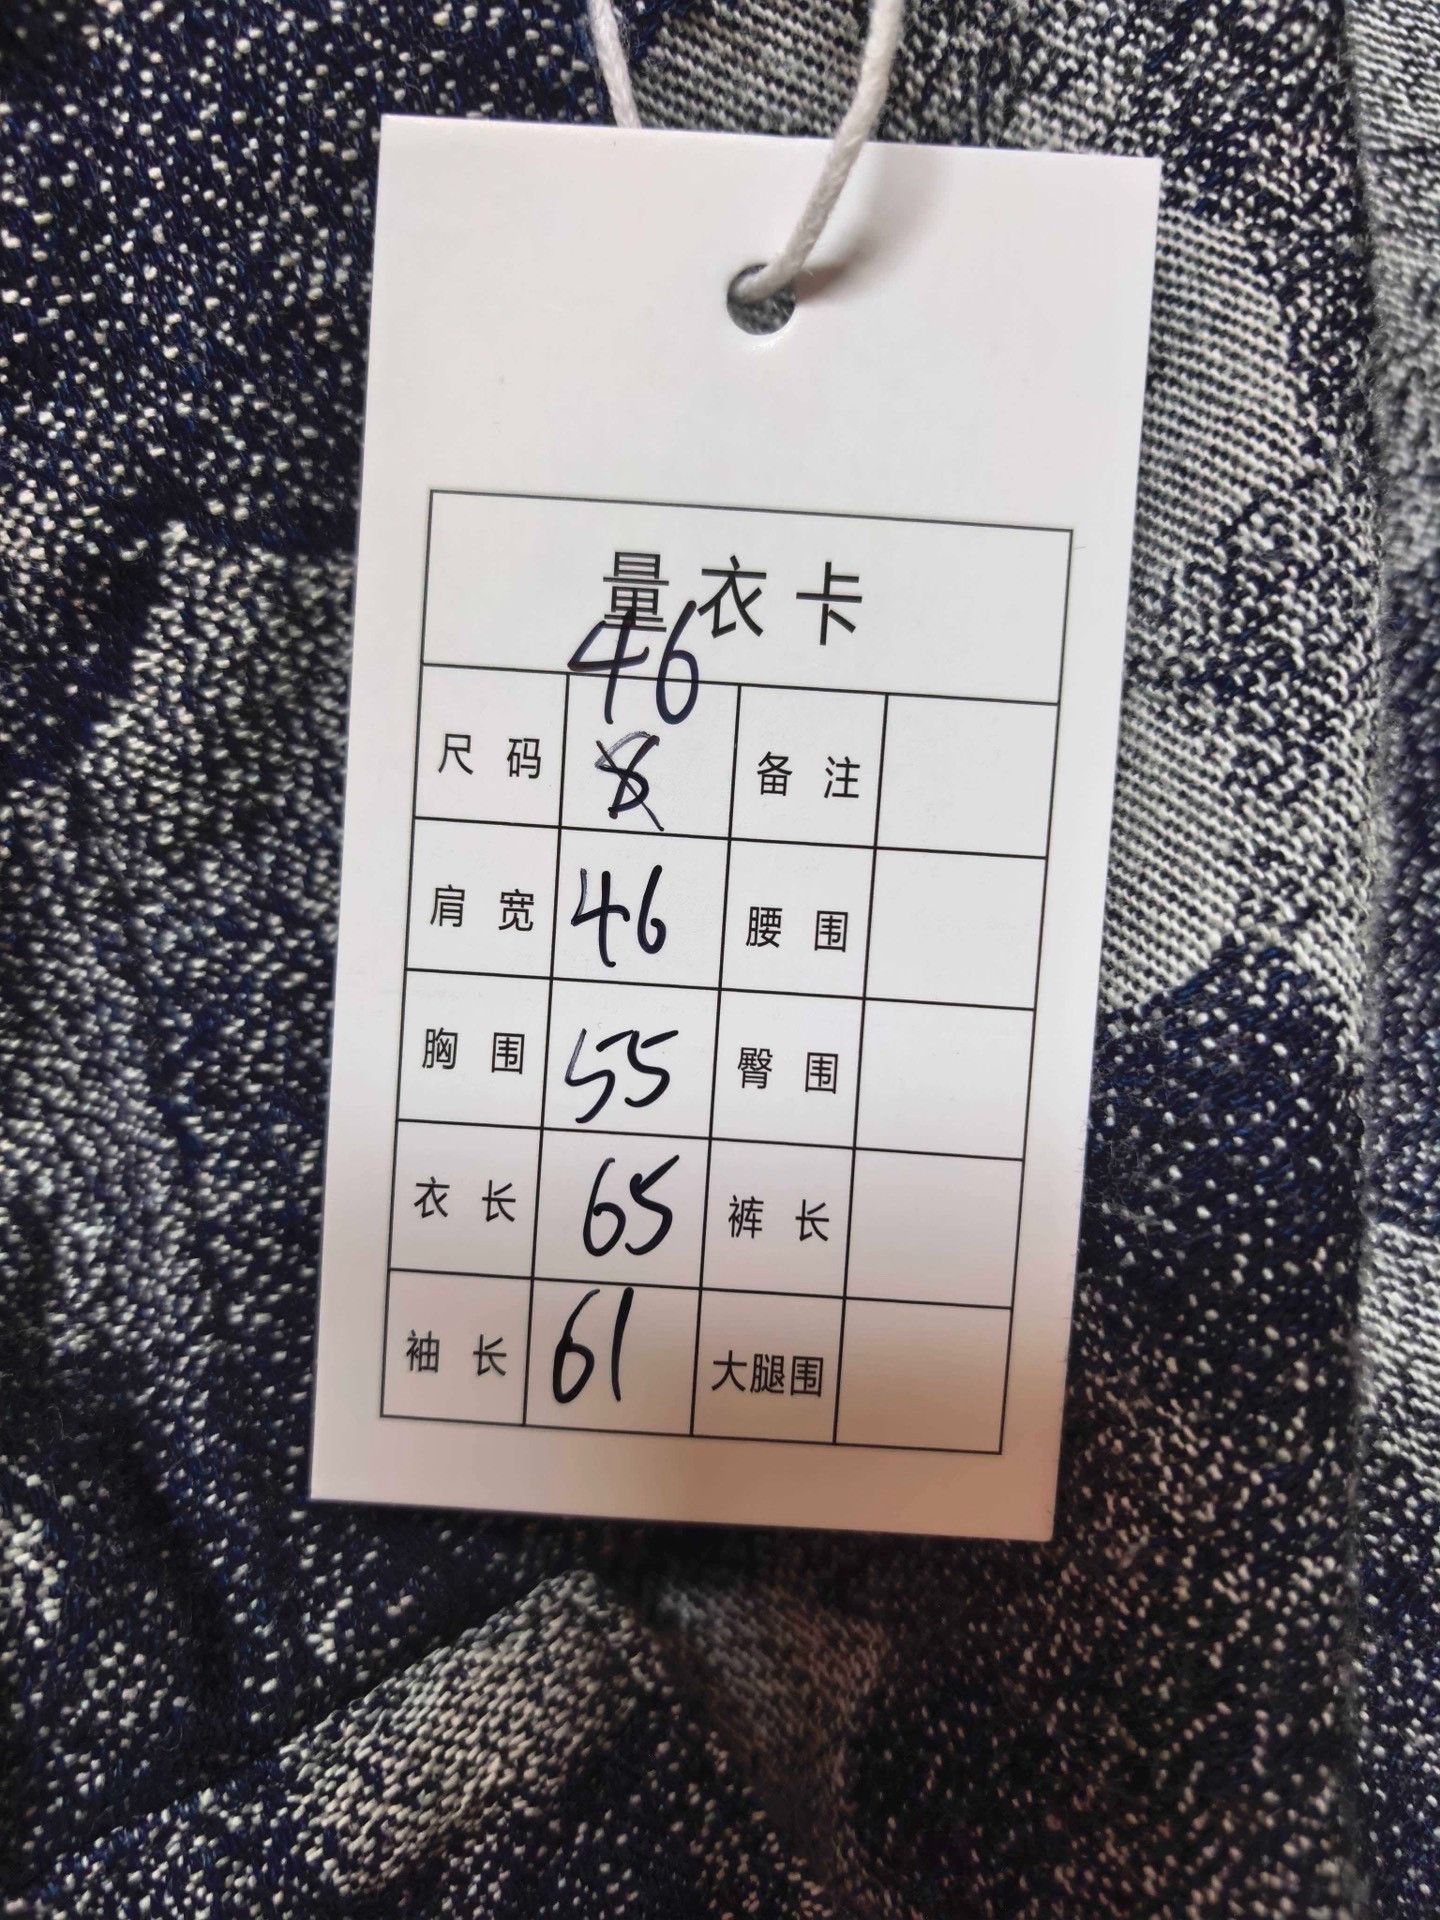 量衣卡
46
尺码 8 备注
肩宽 46 腰围
胸围 55 臀围
衣长 65 裤长
袖长 61 大腿围